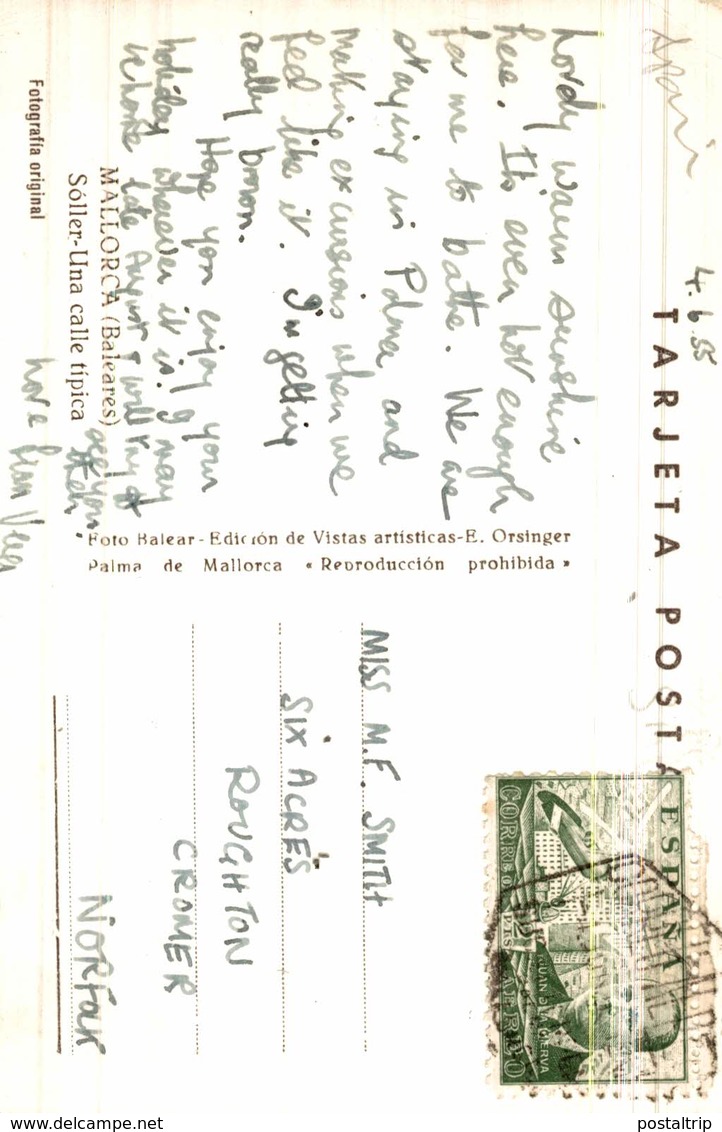 Spain
4.6.55
TARJETA POSTA
Lovely warm sunshine
here. Its even hot enough
for me to bathe. We are
staying in Palma and
making excursions when we
feel like it. I'm getting
really brown.
Hope you enjoy your
holiday wherever it is. I may
see you
then
love from Vera
MALLORCA (Baleares)
Sóller-Una calle típica
Fotografía original
Foto Balear - Edición de Vistas artísticas-E. Orsinger
Palma de Mallorca « Reproducción prohibida »
MISS M.F. SMITH
SIX ACRES
ROUGHTON
CROMER
NORFOLK
ESPAÑA
CORREO AEREO
JUAN DE LA CIERVA
© postaltrip
postaltrip